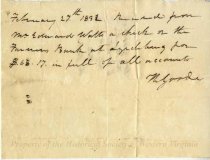 February 27th 1892 Received from
Mr Edward Watts a check on the
Farmers Bank at Lynchburg for
$68.17 in full of all accounts.
Property of the Historical Society of Western Virginia